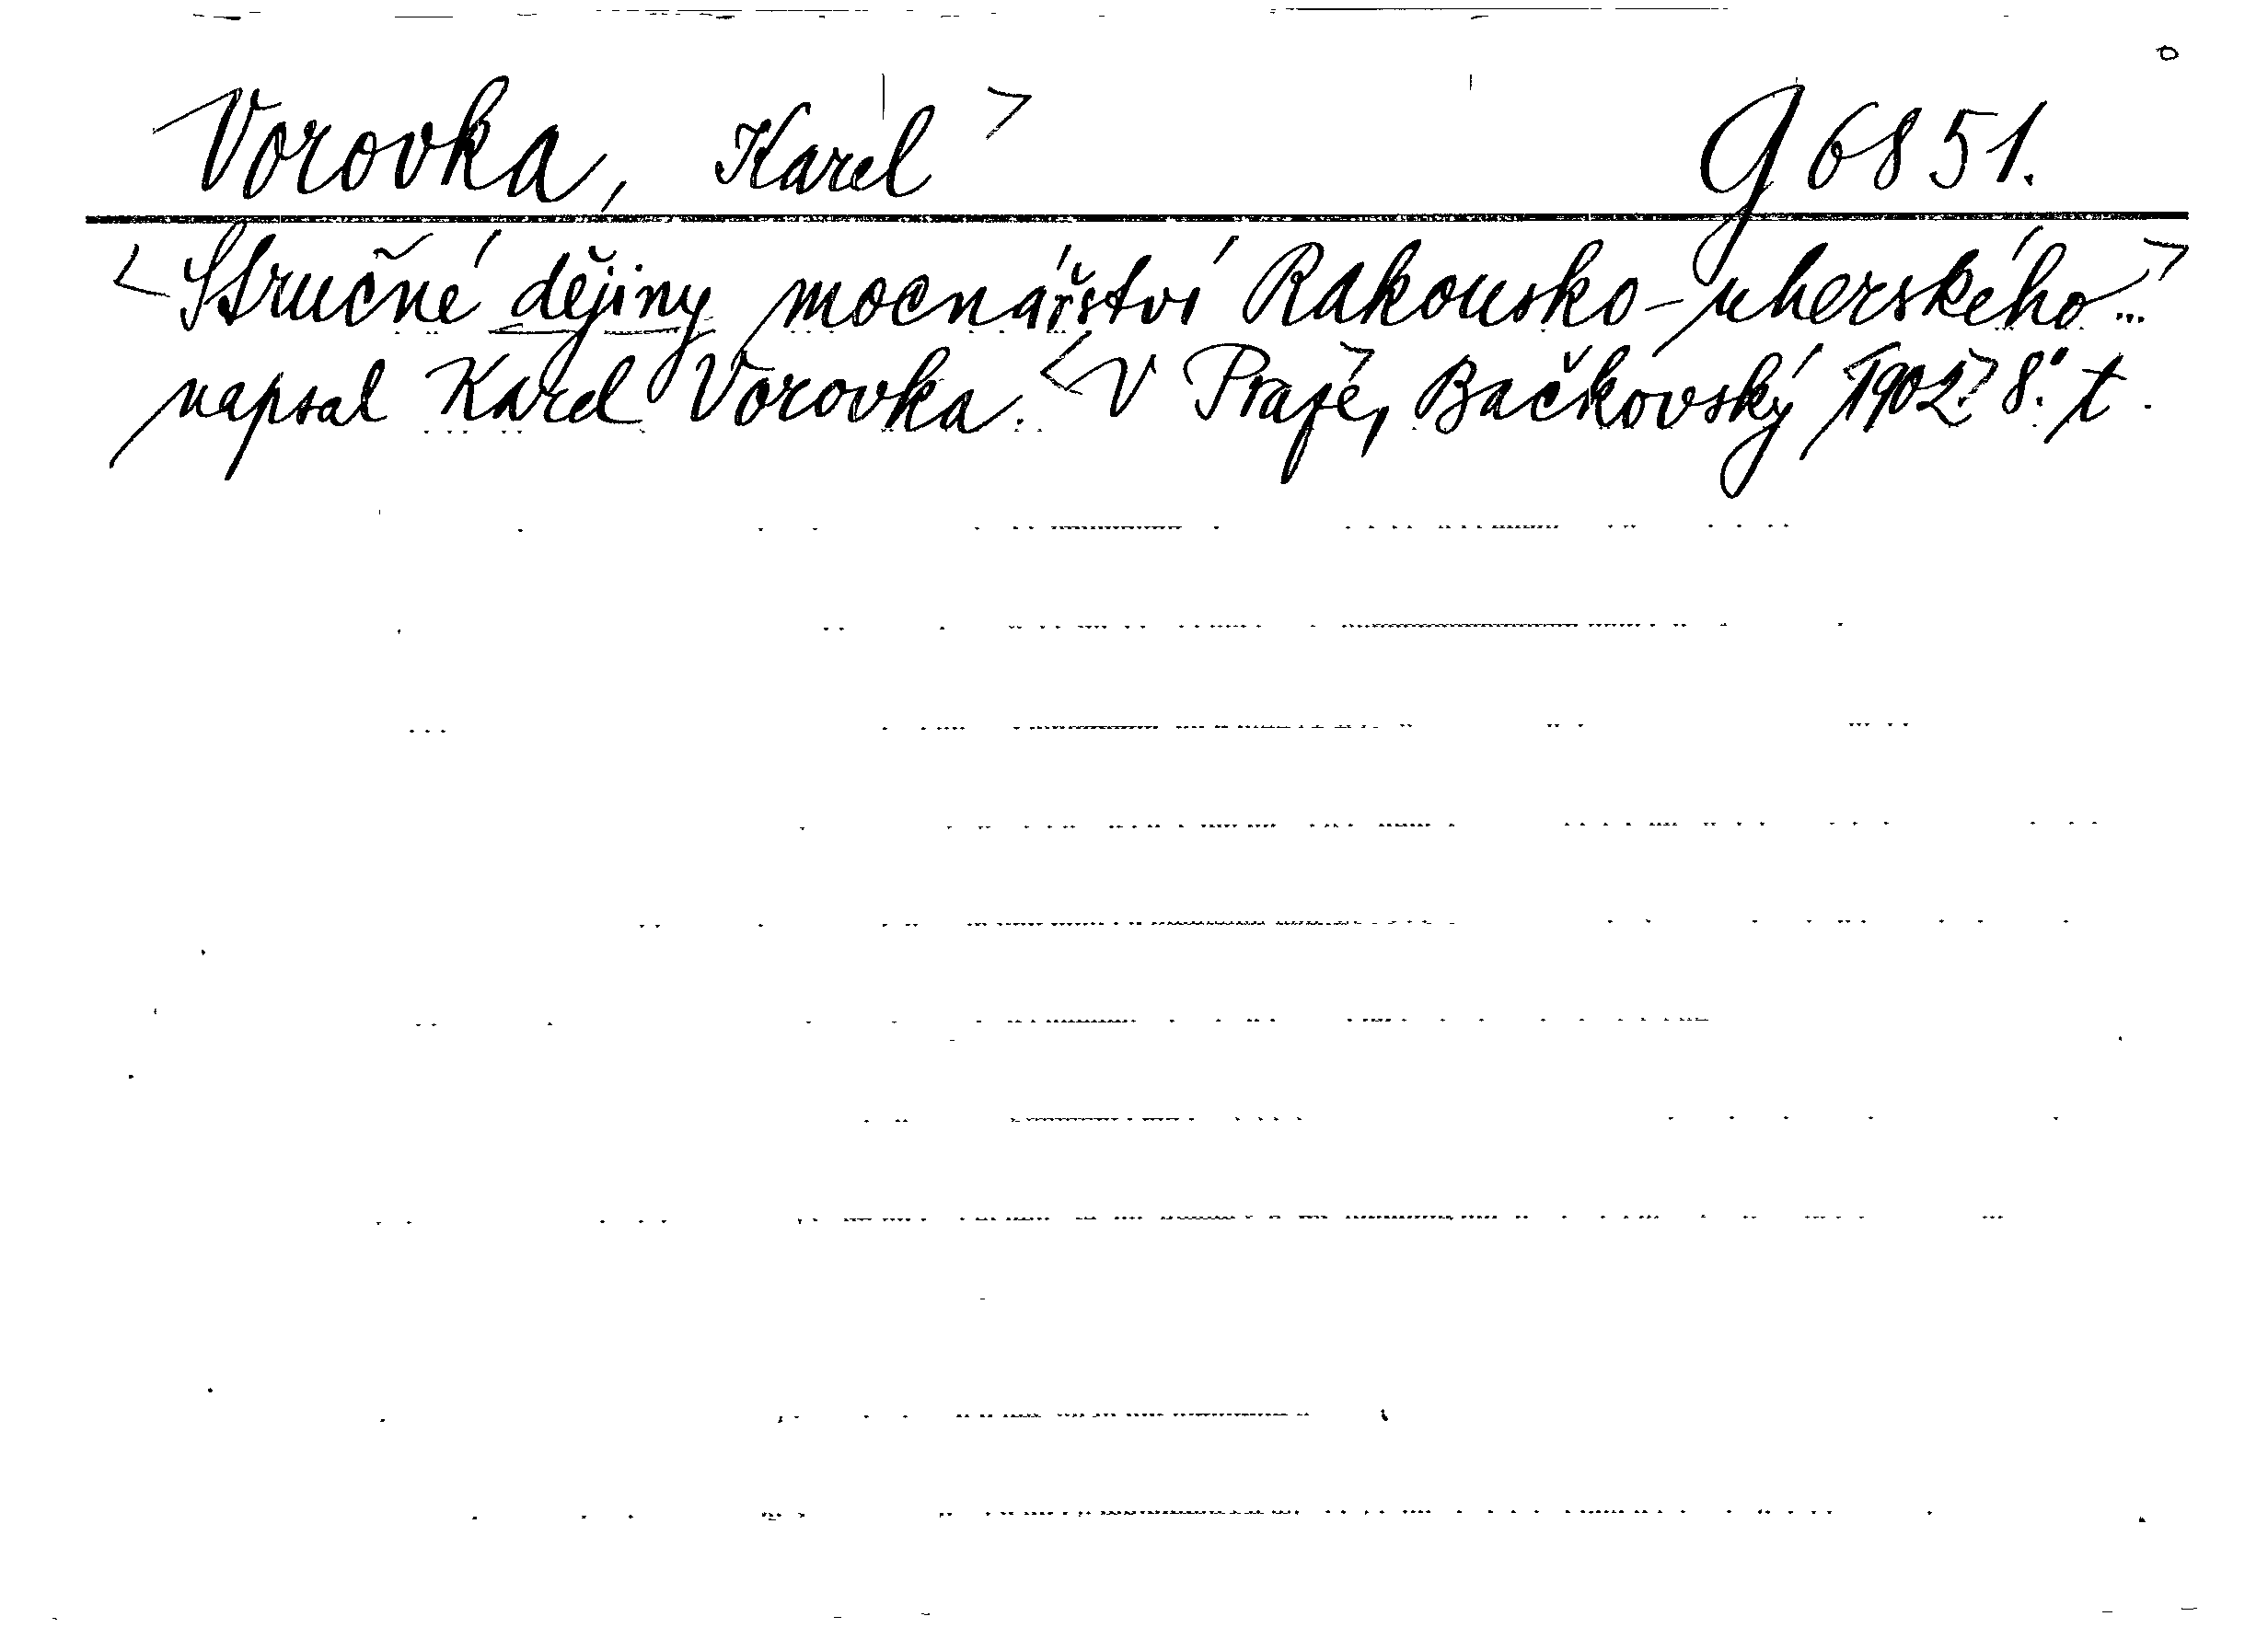 Vorovka, Karel> g 6851.
<Stručné dějiny mocnářství Rakousko-uherského...>
napsal Karel Vorovka. <V Praze, Bačkovský 1902> 8.° t.